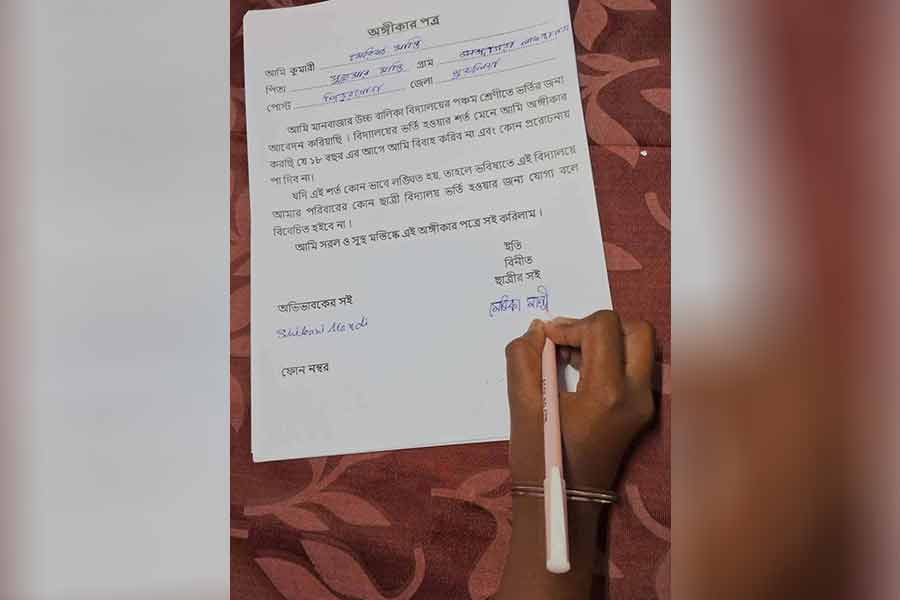 অঙ্গীকার পত্র
আমি কুমারী
পিতা গ্রাম
পোস্ট জেলা
আমি মানবাজার উচ্চ বালিকা বিদ্যালয়ের পঞ্চম শ্রেণীতে ভর্তির জন্য
আবেদন করিয়াছি । বিদ্যালয়ের ভর্তি হওয়ার শর্ত মেনে আমি অঙ্গীকার
করছি যে ১৮ বছর এর আগে আমি বিবাহ করিব না এবং কোন প্ররোচনায়
পা দিব না।
যদি এই শর্ত কোন ভাবে লঙ্ঘিত হয়, তাহলে ভবিষ্যতে এই বিদ্যালয়ে
আমার পরিবারের কোন ছাত্রী বিদ্যালয় ভর্তি হওয়ার জন্য যোগ্য বলে
বিবেচিত হইবে না ।
আমি সরল ও সুস্থ মস্তিষ্কে এই অঙ্গীকার পত্রে সই করিলাম ।
ইতি
বিনীত
ছাত্রীর সই
অভিভাবকের সই
Shibani Mandi
ফোন নম্বর